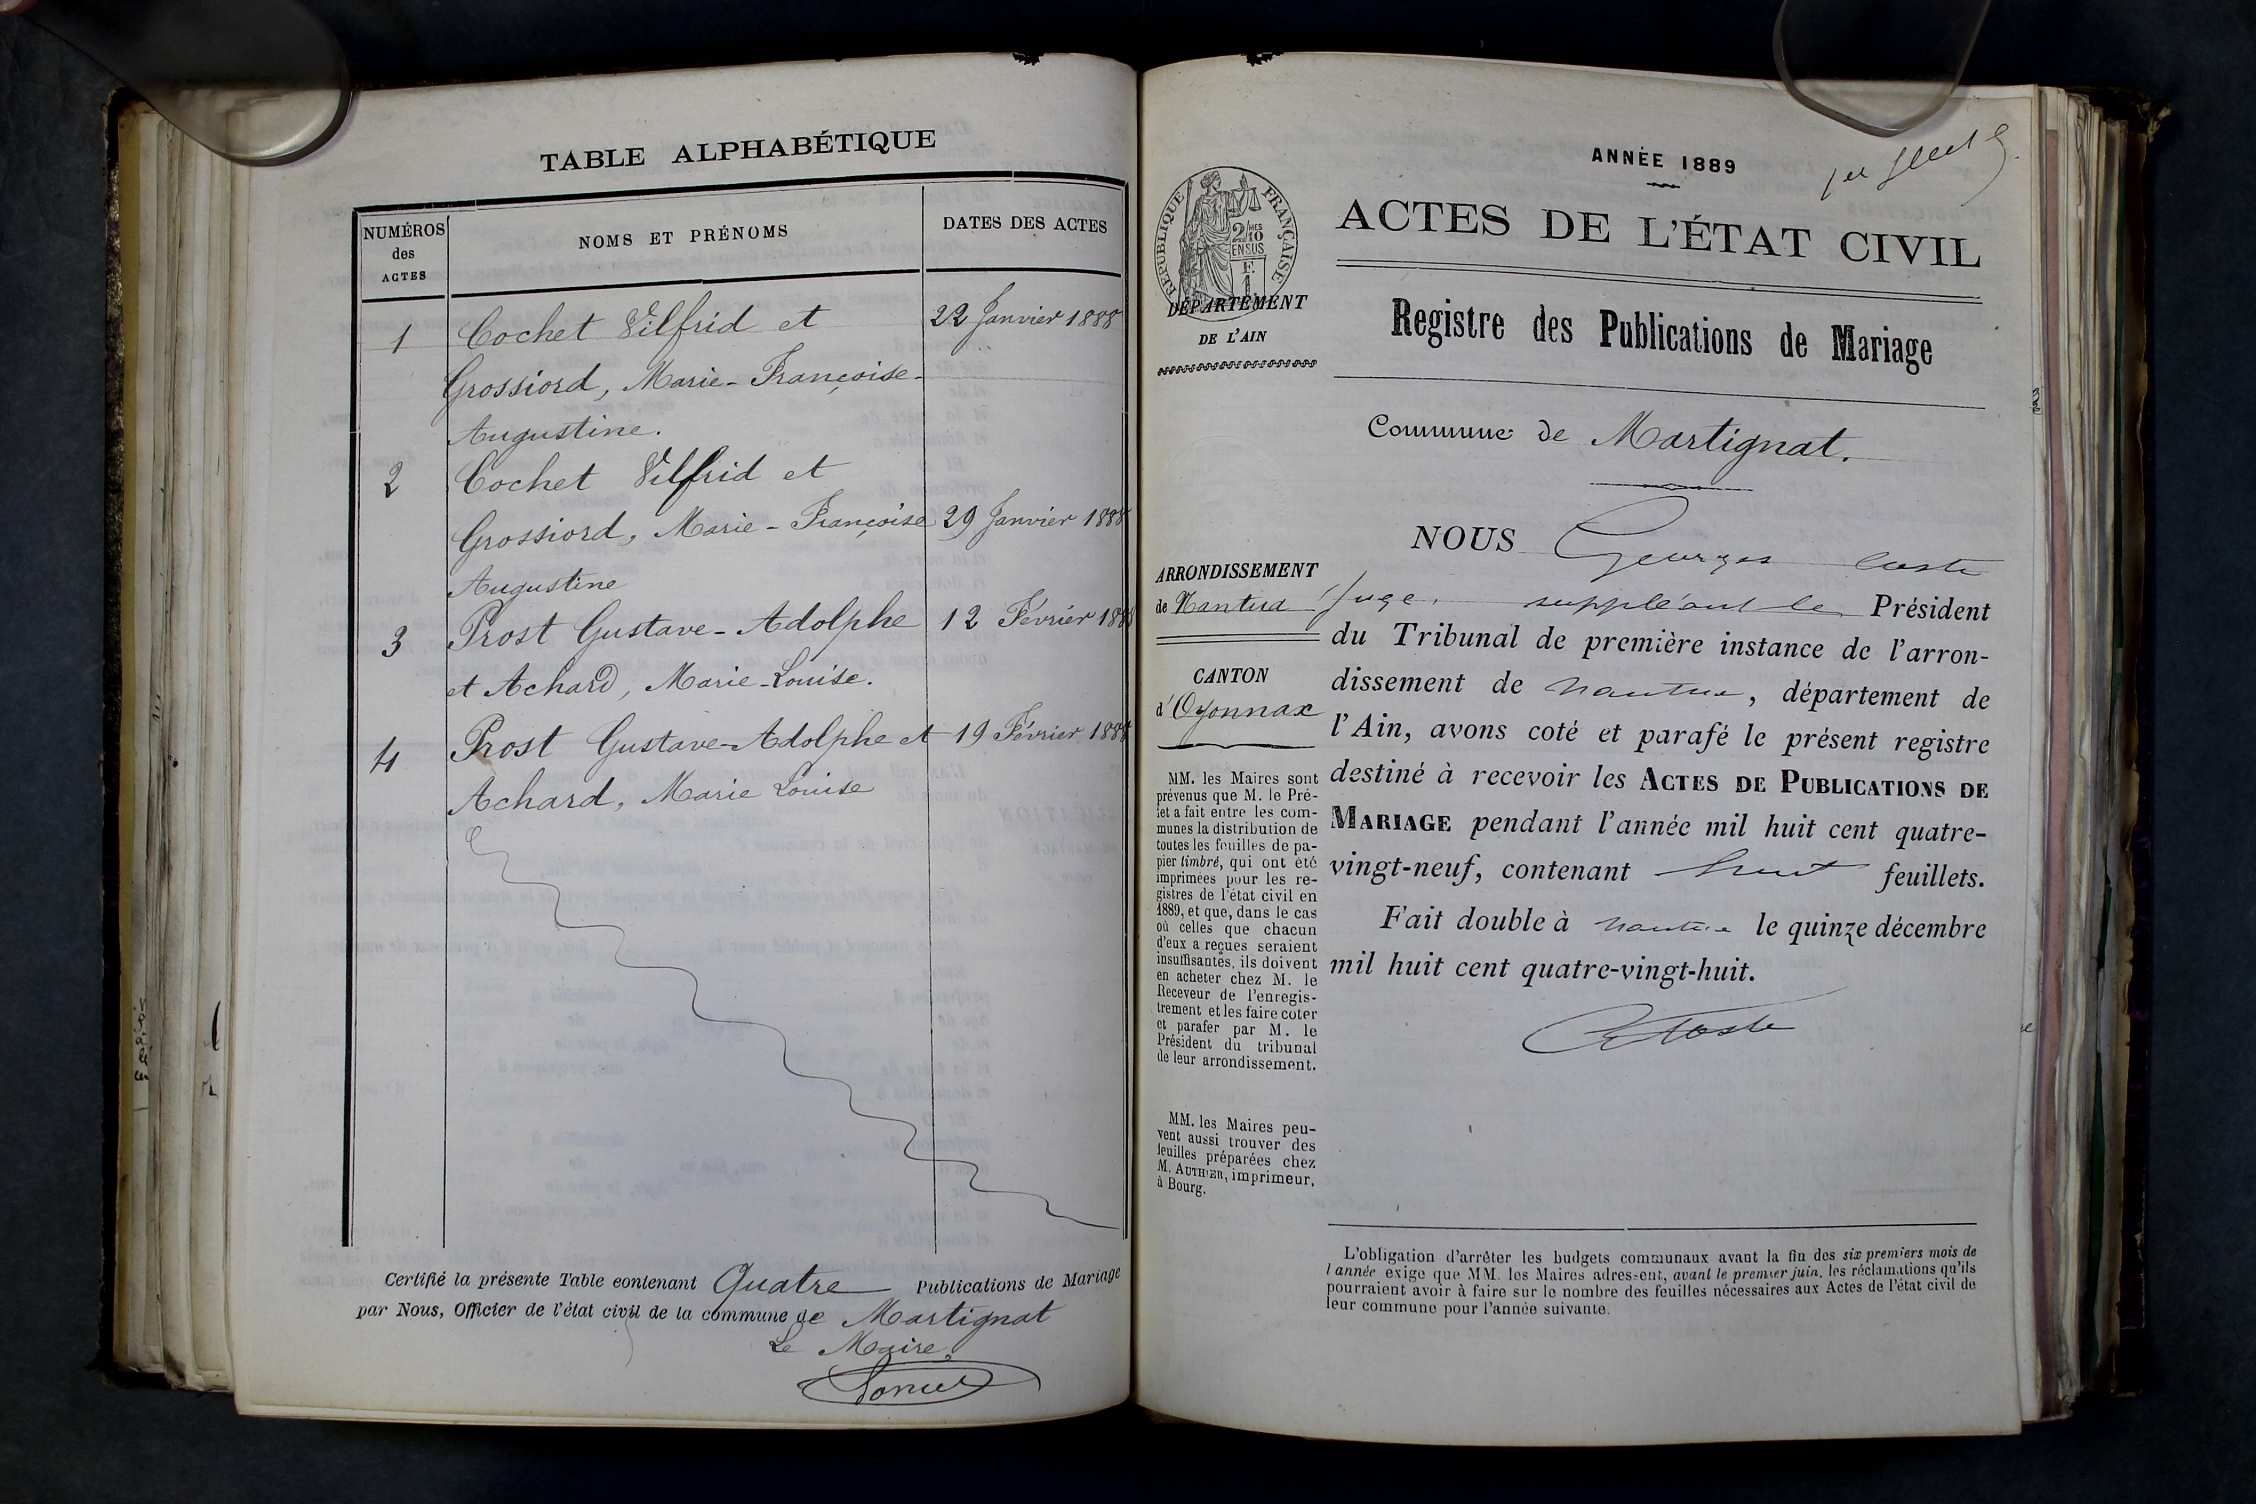 TABLE ALPHABÉTIQUE
NUMÉROS
des
ACTES
NOMS ET PRÉNOMS
DATES DES ACTES
1 Cochet Vilfrid et 22 Janvier 1888
Grossiord, Marie-Françoise-
Augustine.
2 Cochet Vilfrid et
Grossiord, Marie-Françoise 29 Janvier 1888
Augustine
3 Prost Gustave-Adolphe 12 Février 1888
et Achard, Marie-Louise.
4 Prost Gustave-Adolphe et 19 Février 1888
Achard, Marie Louise
Certifié la présente Table contenant Quatre Publications de Mariage
par Nous, Officier de l'état civil de la commune de Martignat
Le Maire,
ANNÉE 1889
ACTES DE L'ÉTAT CIVIL
RÉPUBLIQUE FRANÇAISE
2/10MES
EN SUS
DÉPARTEMENT
DE L'AIN
Registre des Publications de Mariage
Commune de Martignat.
ARRONDISSEMENT
de Nantua
CANTON
d'Oyonnax
MM. les Maires sont
prévenus que M. le Pré-
fet a fait entre les com-
munes la distribution de
toutes les feuilles de pa-
pier timbré, qui ont été
imprimées pour les re-
gistres de l'état civil en
1889, et que, dans le cas
où celles que chacun
d'eux a reçues seraient
insuffisantes, ils doivent
en acheter chez M. le
Receveur de l'enregis-
trement et les faire coter
et parafer par M. le
Président du tribunal
de leur arrondissement.
MM. les Maires peu-
vent aussi trouver des
feuilles préparées chez
M. AUTHIER, imprimeur,
à Bourg.
NOUS Georges Coste
Juge suppléant le Président
du Tribunal de première instance de l'arron-
dissement de Nantua, département de
l'Ain, avons coté et parafé le présent registre
destiné à recevoir les ACTES DE PUBLICATIONS DE
MARIAGE pendant l'année mil huit cent quatre-
vingt-neuf, contenant huit feuillets.
Fait double à Nantua le quinze décembre
mil huit cent quatre-vingt-huit.
Coste
L'obligation d'arrêter les budgets communaux avant la fin des six premiers mois de
l'année exige que MM. les Maires adressent, avant le premier juin, les réclamations qu'ils
pourraient avoir à faire sur le nombre des feuilles nécessaires aux Actes de l'état civil de
leur commune pour l'année suivante.